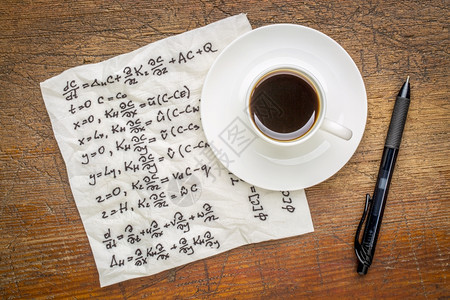 dC/dt = Δ_H C + ∂/∂z K_z ∂C/∂z + AC + Q
t=0 C = C₀
x=0, K_H ∂C/∂x = ũ(C-C_E)
x=Lx, K_H ∂C/∂x = û(C-C
y=0, K_H ∂C/∂y = ṽ(C-C
y=Ly, K_H ∂C/∂y = v̂(C-C
z=0, K_z ∂C/∂z = v_d C -
z=H, K_z ∂C/∂z =
φ[C] =
d/dt = ∂/∂t + u ∂/∂x + v ∂/∂y + w ∂/∂z
Δ_H = ∂/∂x K_H ∂/∂x + ∂/∂y K_H ∂/∂y